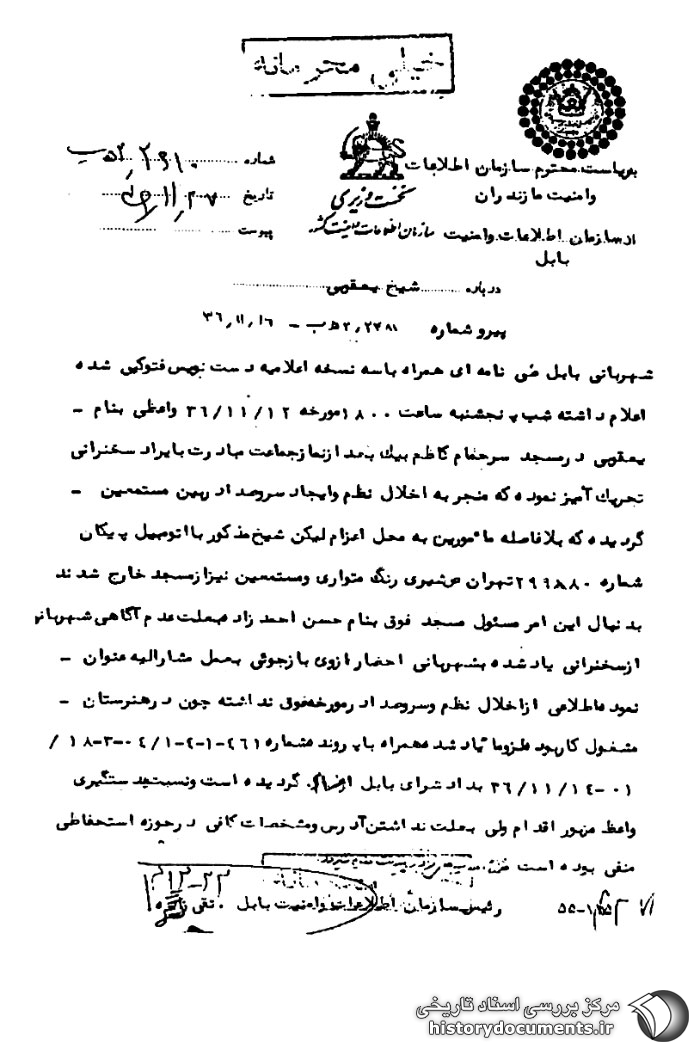 خیلی محرمانه
بریاست محترم سازمان اطلاعات
وامنیت مازندران
نخست وزیری
سازمان اطلاعات و امنیت کشور
شماره
تاریخ
پیوست
از سازمان اطلاعات وامنیت
بابل
درباره شیخ یعقوبی
پیرو شماره ۳۶/۱۱/۱۶
شهربانی بابل طی نامه ای همراه باسه نسخه اعلامیه دست نویس فتوکپی شده
اعلام داشته شب پنجشنبه ساعت ۱۸۰۰ مورخه ۳۶/۱۱/۱۲ واعظی بنام -
یعقوبی در مسجد سرحمام کاظم بیک بعد از نماز جماعت مبادرت بایراد سخنرانی
تحریک آمیز نموده که منجر به اخلال نظم وایجاد سروصدا در بین مستمعین -
گردیده که بلافاصله مأمورین به محل اعزام لیکن شیخ مذکور با اتومبیل پیکان
شماره تهران شیری رنگ متواری ومستمعین نیز از مسجد خارج شدند
بدنبال این امر مسئول مسجد فوق بنام حسن احمدزاد بعلت عدم آگاهی شهربانی
از سخنرانی یاد شده بشهربانی احضار ازوی بازجوئی بعمل مشارالیه عنوان -
نموده اطلاعی از اخلال نظم وسروصدا در مورخه فوق نداشته چون در هنرستان -
مشغول کار بوده پرونده شماره ۴۶۱-۱-۲-۰۴/۱-۳-۱۸ /
۰۱-۳۶/۱۱/۱۴ بدادسرای بابل گردیده است ونسبت بدستگیری
واعظ مزبور اقدام ولی بعلت نداشتن آدرس ومشخصات کافی در حوزه استحفاظی
منفی بوده است
رئیس سازمان اطلاعات وامنیت بابل . تقی زاده
مرکز بررسی اسناد تاریخی
historydocuments.ir